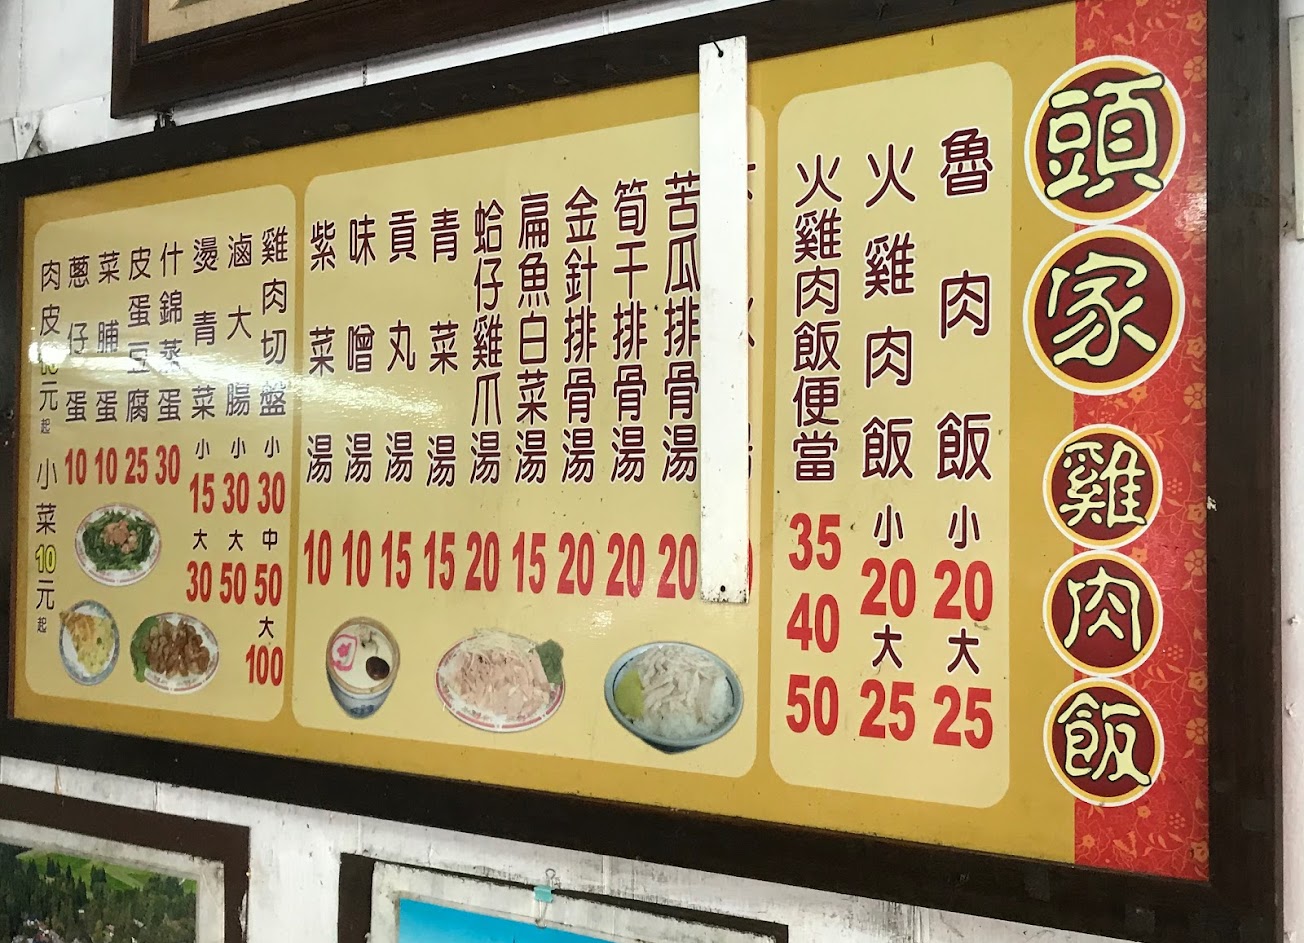 頭家雞肉飯
魯肉飯小20大25
火雞肉飯小20大25
火雞肉飯便當354050
苦瓜排骨湯20
筍干排骨湯20
金針排骨湯20
扁魚白菜湯15
蛤仔雞爪湯20
青菜湯15
貢丸湯15
味噌湯10
紫菜湯10
雞肉切盤小30中50大100
滷大腸小30大50
燙青菜小15大30
什錦蒸蛋30
皮蛋豆腐25
菜脯蛋10
蔥仔蛋10
肉皮10元起 小菜10元起